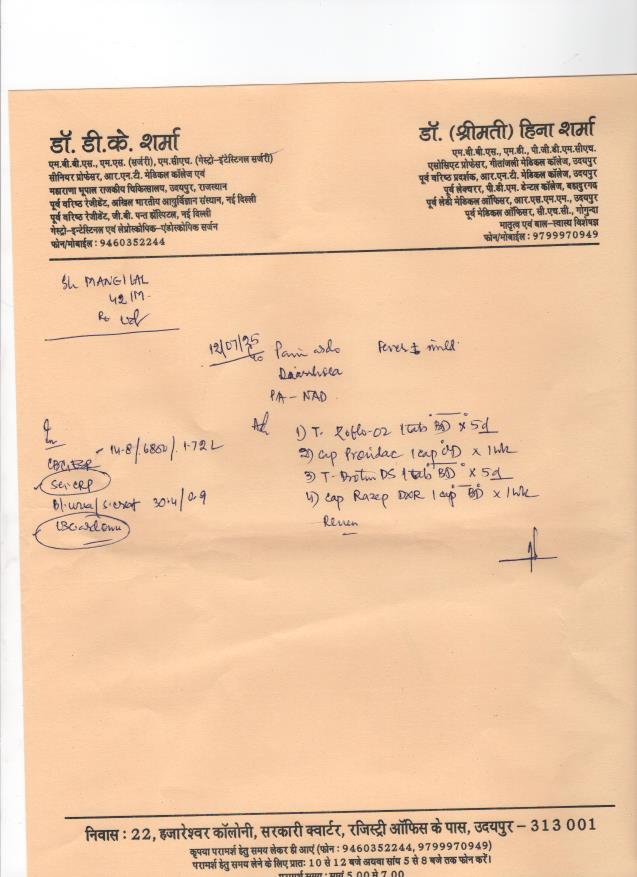 डॉ. डी.के. शर्मा
एम.बी.बी.एस., एम.एस. (सर्जरी), एम.सीएच. (गेस्ट्रो-इंटेस्टिनल सर्जरी)
सीनियर प्रोफेसर, आर.एन.टी. मेडिकल कॉलेज एवं
महाराणा भूपाल राजकीय चिकित्सालय, उदयपुर, राजस्थान
पूर्व वरिष्ठ रेजीडेंट, अखिल भारतीय आयुर्विज्ञान संस्थान, नई दिल्ली
पूर्व वरिष्ठ रेजीडेंट, जी.बी. पन्त हॉस्पिटल, नई दिल्ली
गेस्ट्रो-इन्टेस्टिनल एवं लेप्रोस्कोपिक-एंडोस्कोपिक सर्जन
फोन/मोबाईल : 9460352244
डॉ. (श्रीमती) हिना शर्मा
एम.बी.बी.एस., एम.डी., पी.जी.डी.एम.सीएच.
एसोसिएट प्रोफेसर, गीतांजली मेडिकल कॉलेज, उदयपुर
पूर्व वरिष्ठ प्रदर्शक, आर.एन.टी. मेडिकल कॉलेज, उदयपुर
पूर्व लेक्चरर, पी.डी.एम. डेन्टल कॉलेज, बहादुरगढ़
पूर्व लेडी मेडिकल ऑफिसर, आर.एस.एम.एम., उदयपुर
पूर्व मेडिकल ऑफिसर, सी.एच.सी., गोगुन्दा
मातृत्व एवं बाल-स्वास्थ्य विशेषज्ञ
फोन/मोबाईल : 9799970949
Sh MANGILAL
42/M
12/07/25 Pain abdo Fever ± mild
Diarrhoea
PA - NAD
Inv
14.8/6850/1.72 L
Se. CRP
Bl. urea/s. creat 30.4/0.9
Adv 1) T. Zoflo-OZ 1 tab BD x 5d
2) Cap Prowidac 1 cap OD x 1 wk
3) T- Brotin DS 1 tab BD x 5d
4) Cap Razep DXR 1 cap BD x 1 wk
Review
निवास : 22, हजारेश्वर कॉलोनी, सरकारी क्वार्टर, रजिस्ट्री ऑफिस के पास, उदयपुर - 313 001
कृपया परामर्श हेतु समय लेकर ही आएं (फोन : 9460352244, 9799970949)
परामर्श हेतु समय लेने के लिए प्रातः 10 से 12 बजे अथवा सांय 5 से 8 बजे तक फोन करें।